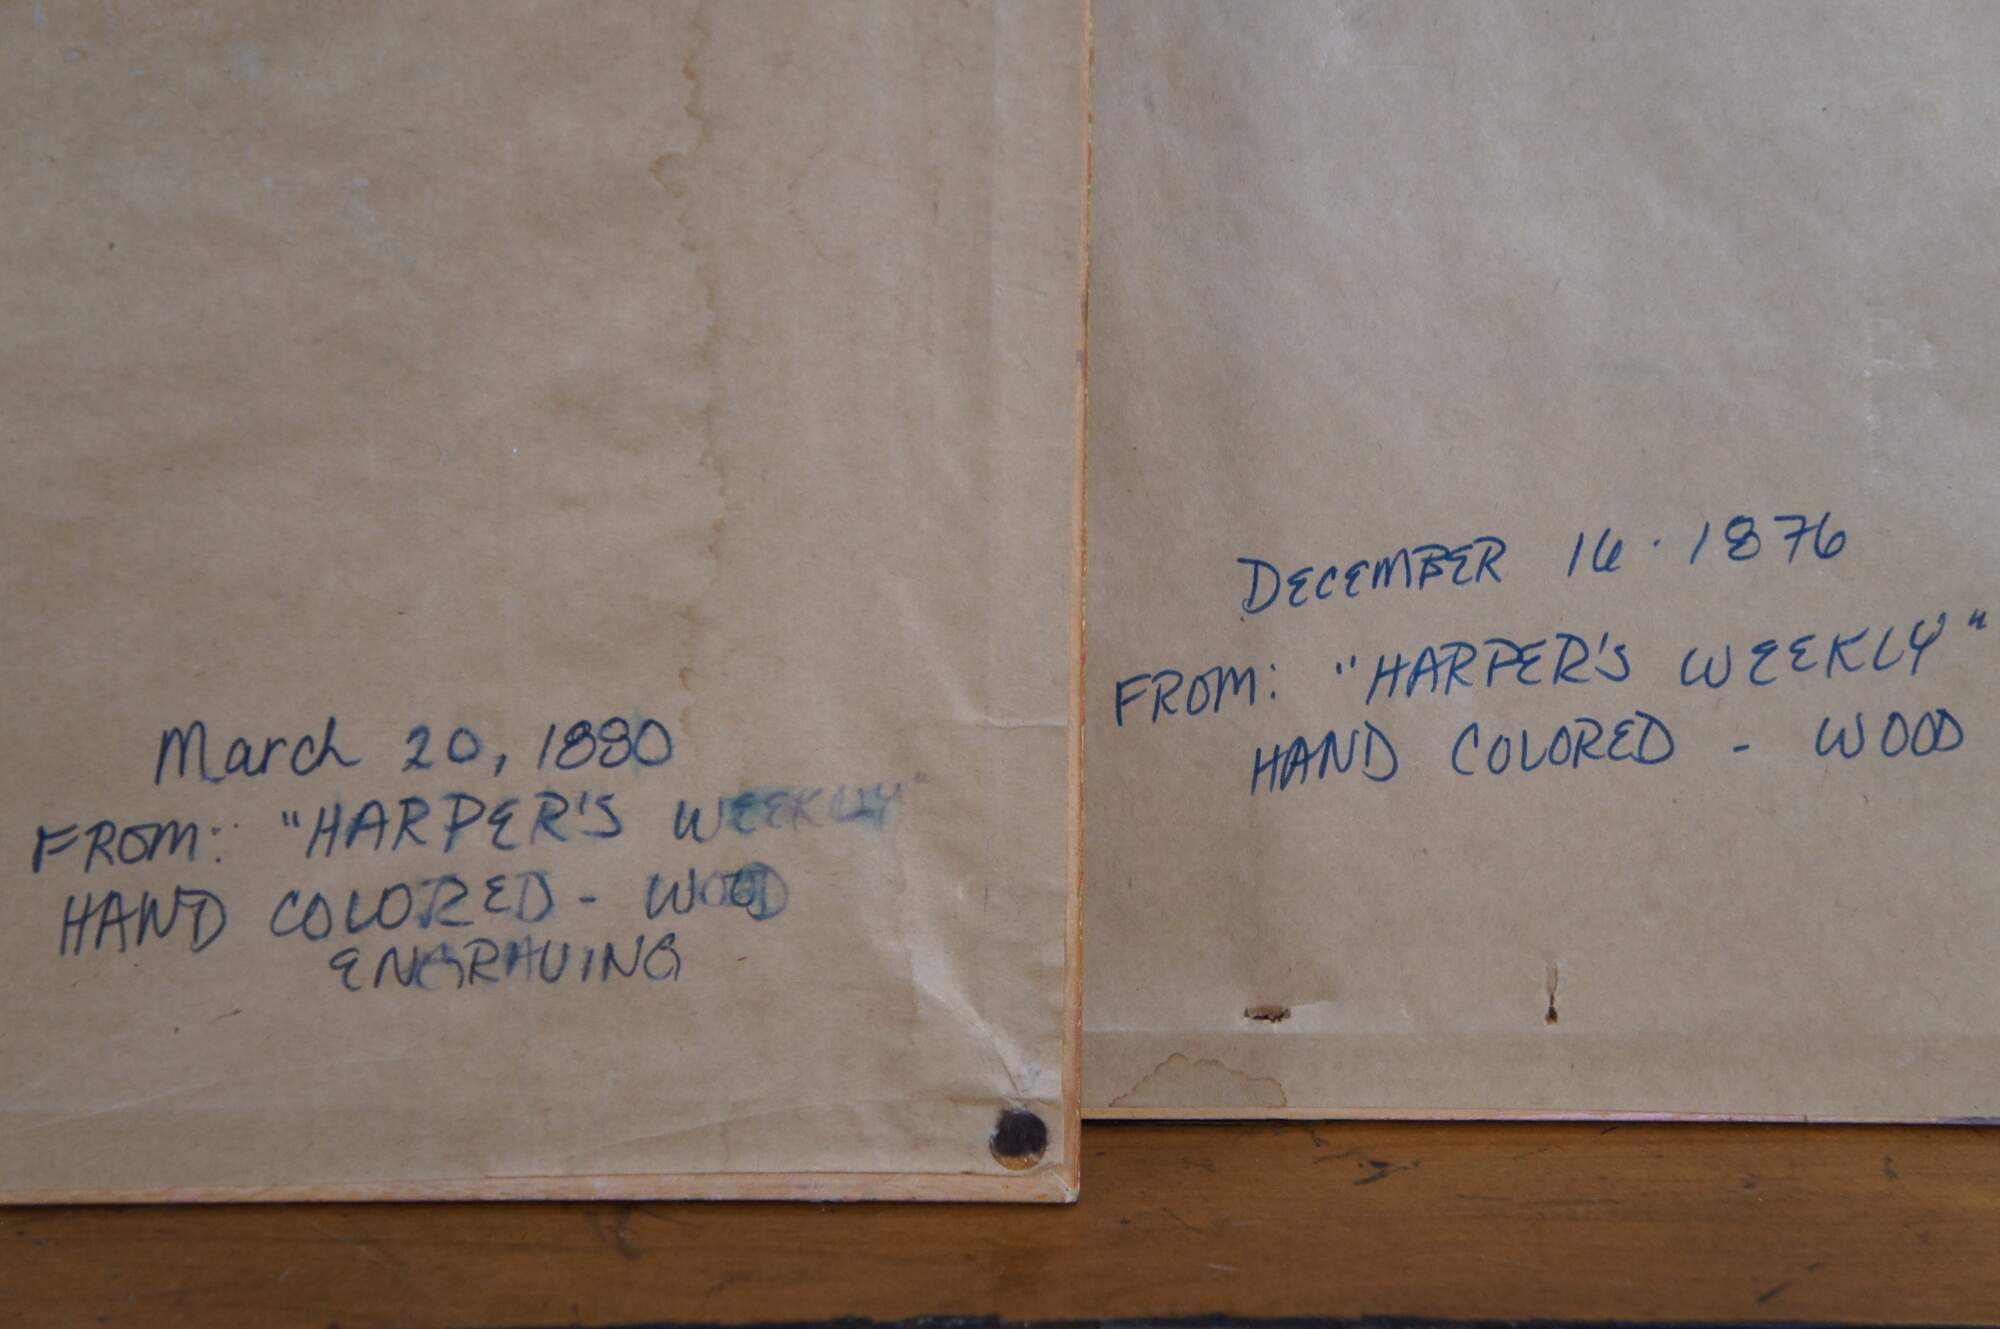 March 20, 1880
FROM: "HARPER'S WEEKLY"
HAND COLORED - WOOD
ENGRAVING
DECEMBER 16 · 1876
FROM: "HARPER'S WEEKLY"
HAND COLORED - WOOD